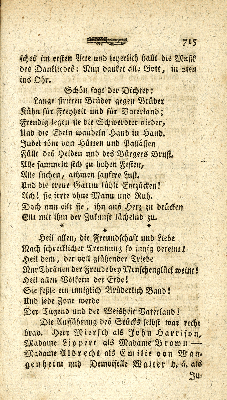 715
sches im ersten Akte und feyerlich hallt die Musik
des Dankliedes: Nun danket alle Gott, in unsr
Ohr.
Schön sagt der Dichter:
Lange stritten Brüder gegen Brüder
Kühn für Freyheit und für Vaterland;
Freudig legen sie die Schwerdter nieder,
Und die Edeln wandeln Hand in Hand.
Jubel tönt von Hütten und Pallästen
Füllt des Helden und des Bürgers Brust.
Alle sammeln sich zu hohen Festen,
Alle suchen, athmen sanftre Lust!
Und die treue Gattin fühlt Entzücken!
Ach! sie irrte ohne Mann und Ruh.
Doch nun eilt sie, ihn ans Herz zu drücken
Sie mit ihm der Zukunft lächelnd zu.
*
Heil allen, die Freundschaft und Liebe
Nach schrecklicher Trennung so innig vereint!
Heil dem, der voll glühender Triebe
Nur Thränen der Freude bey Menschenglück weint!
Heil allen Völkern der Erde!
Sie feßle ein innzlich Brüderlich Band!
Und jede Zone werde
Der Tugend und der Weisheit Vaterland!
Die Aufführung des Stücks selbst war recht
brav. Herr Miersch als John Harrison,
Madame Lippert als Madame Brown —
Madame Albrecht als Emilie von Wan-
genheim und Demoiselle Walter h. s. als
Ju-